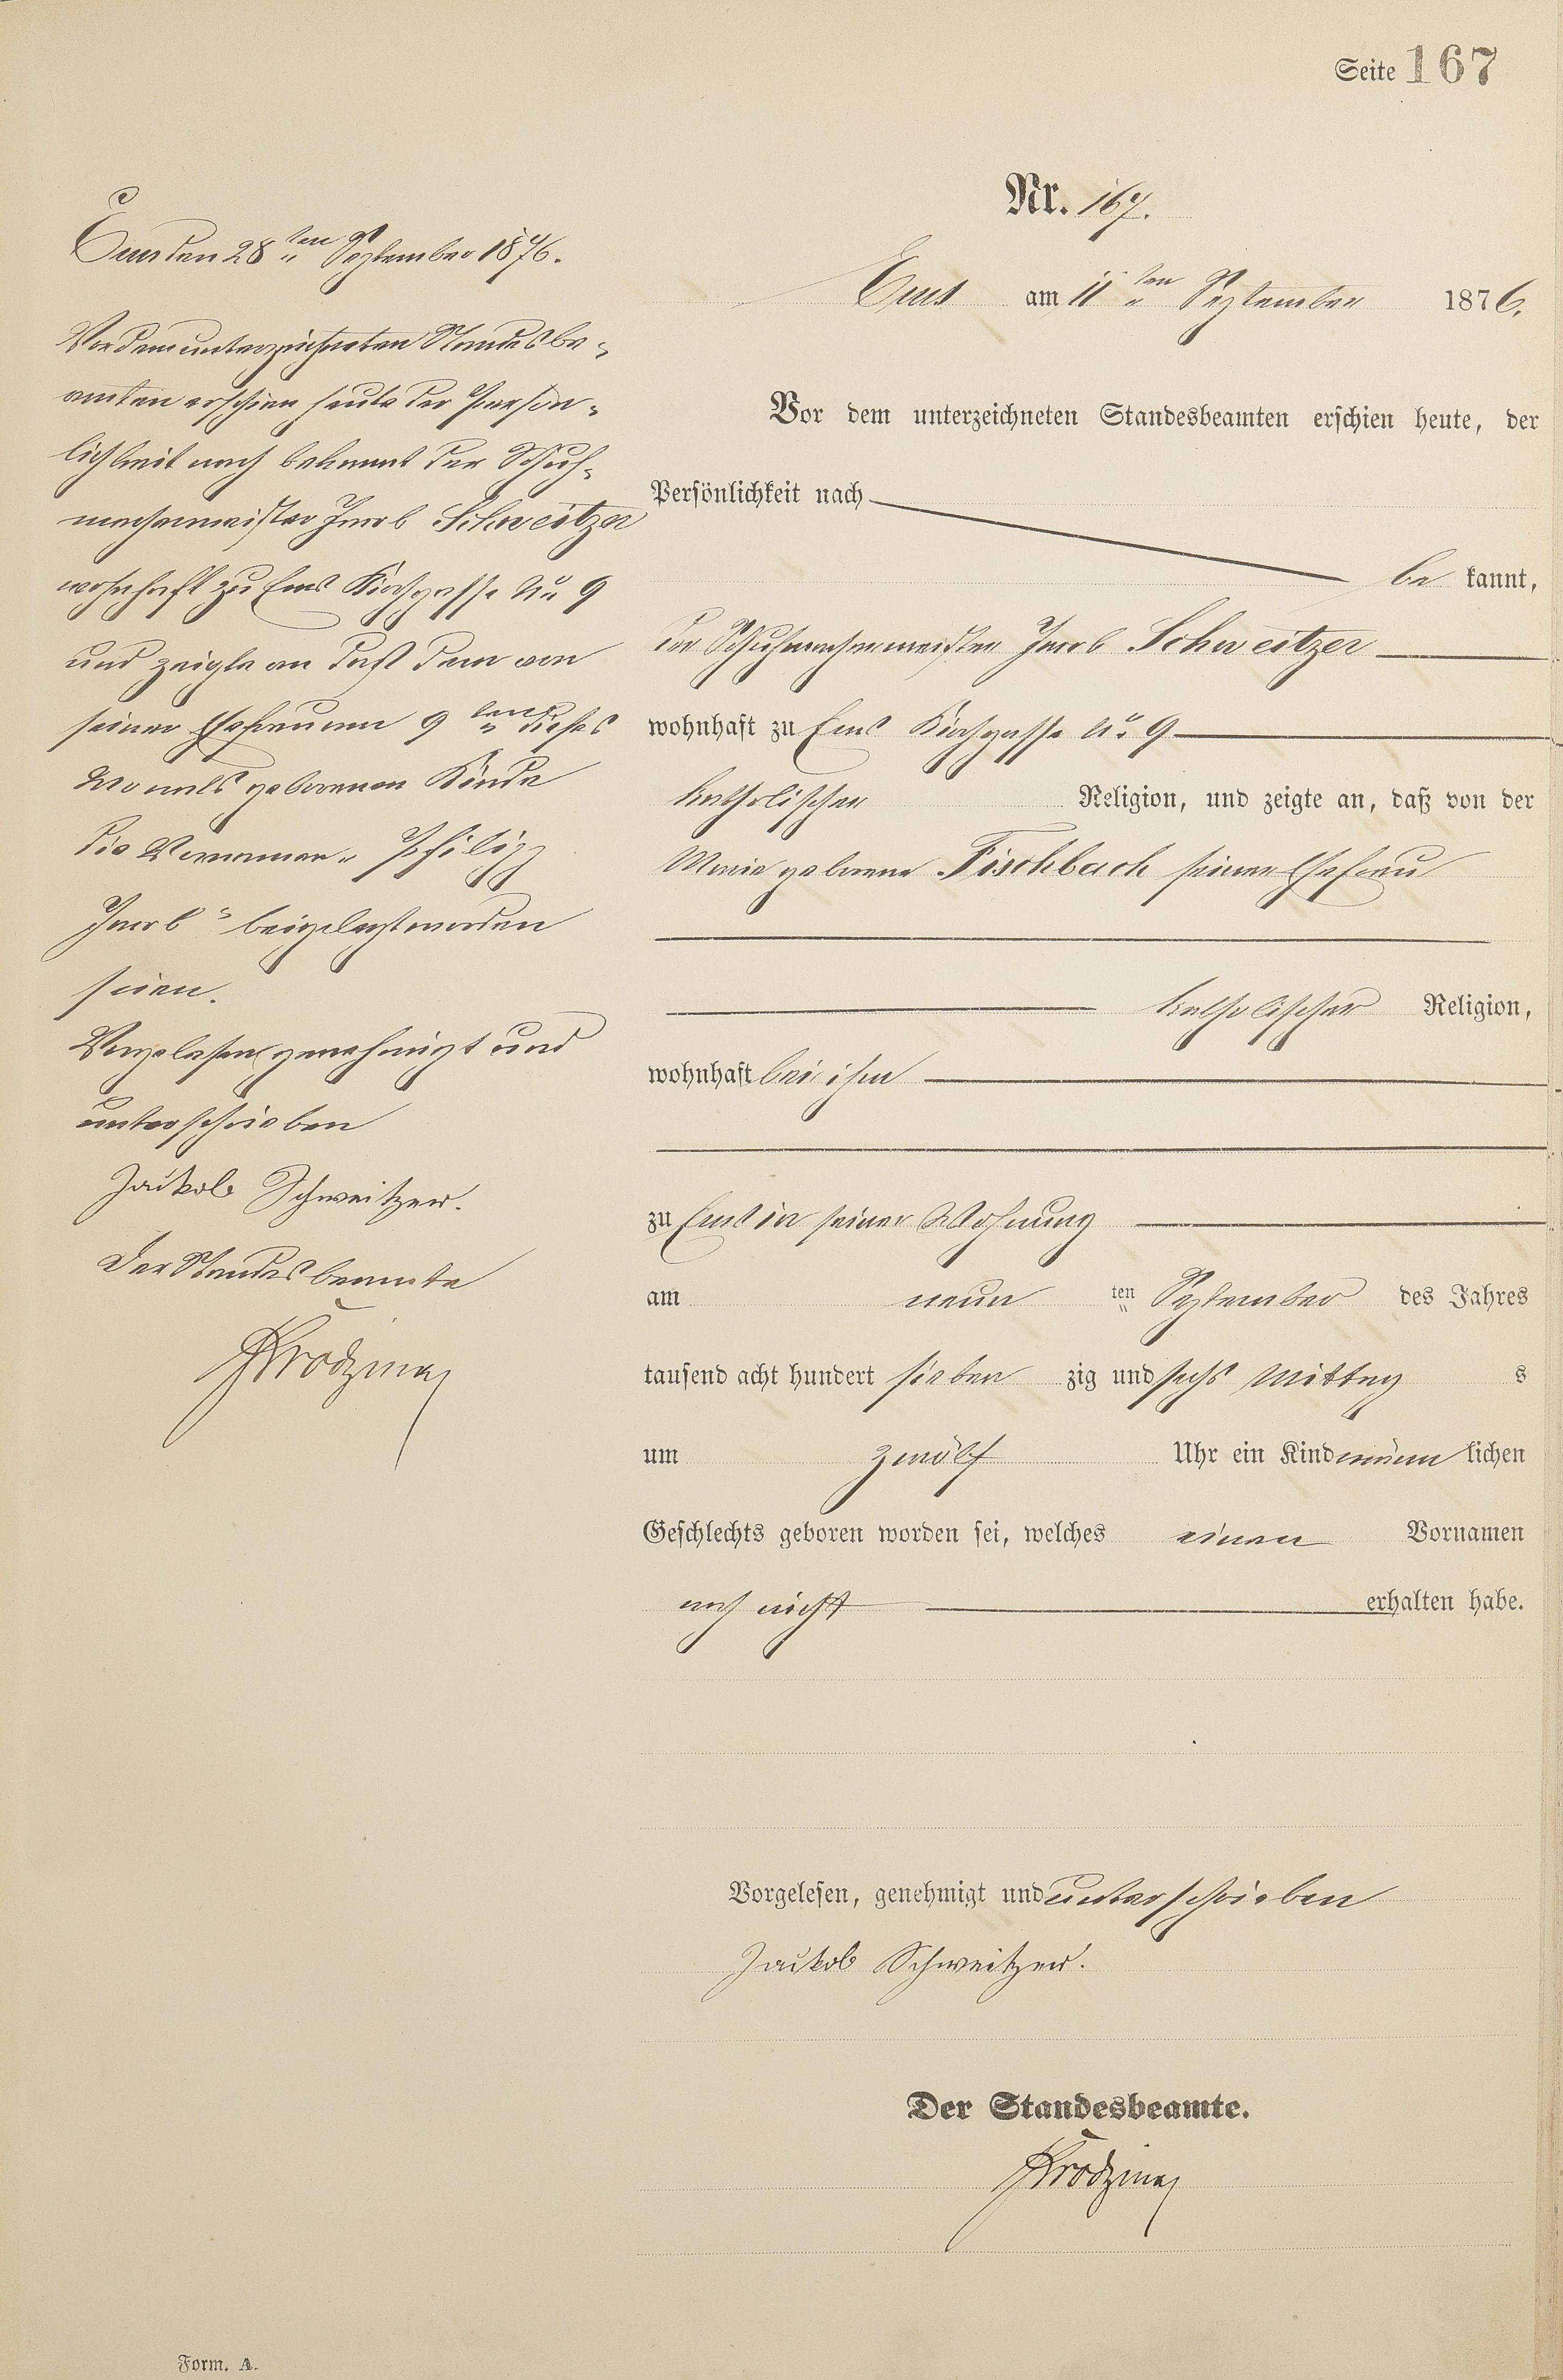 Seite 167
Nr. 167.
Ems am 11ten September 1876.
Vor dem unterzeichneten Standesbeamten erschien heute, der
Persönlichkeit nach
bekannt,
der Schuhmachermeister Jacob Schweitzer
wohnhaft zu Ems Kirchgasse No 9
katholischer Religion, und zeigte an, daß von der
Marie geborene Fischbach seiner Ehefrau
katholischer Religion,
wohnhaft bei ihm
zu Ems in seiner Wohnung
am neun ten September des Jahres
tausend acht hundert sieben zig und sechs Mittag s
um zwölf Uhr ein Kind männlichen
Geschlechts geboren worden sei, welches einen Vornamen
noch nicht erhalten habe.
Vorgelesen, genehmigt und unterschrieben
Jakob Schweitzer.
Der Standesbeamte.
Ems den 28ten September 1876.
Vor dem unterzeichneten Standesbe-
amten erschien heute der Persön-
lichkeit nach bekannt der Schuh-
machermeister Jacob Schweitzer
wohnhaft zu Ems Kirchgasse No 9
und zeigte an daß dem von
seiner Ehefrau am 9ten dieses
Monats geborenen Kinde
die Vornamen „Philipp
Jacob" beigelegt worden
seien.
Vorgelesen genehmigt und
unterschrieben
Jakob Schweitzer.
Der Standesbeamte
Form. A.